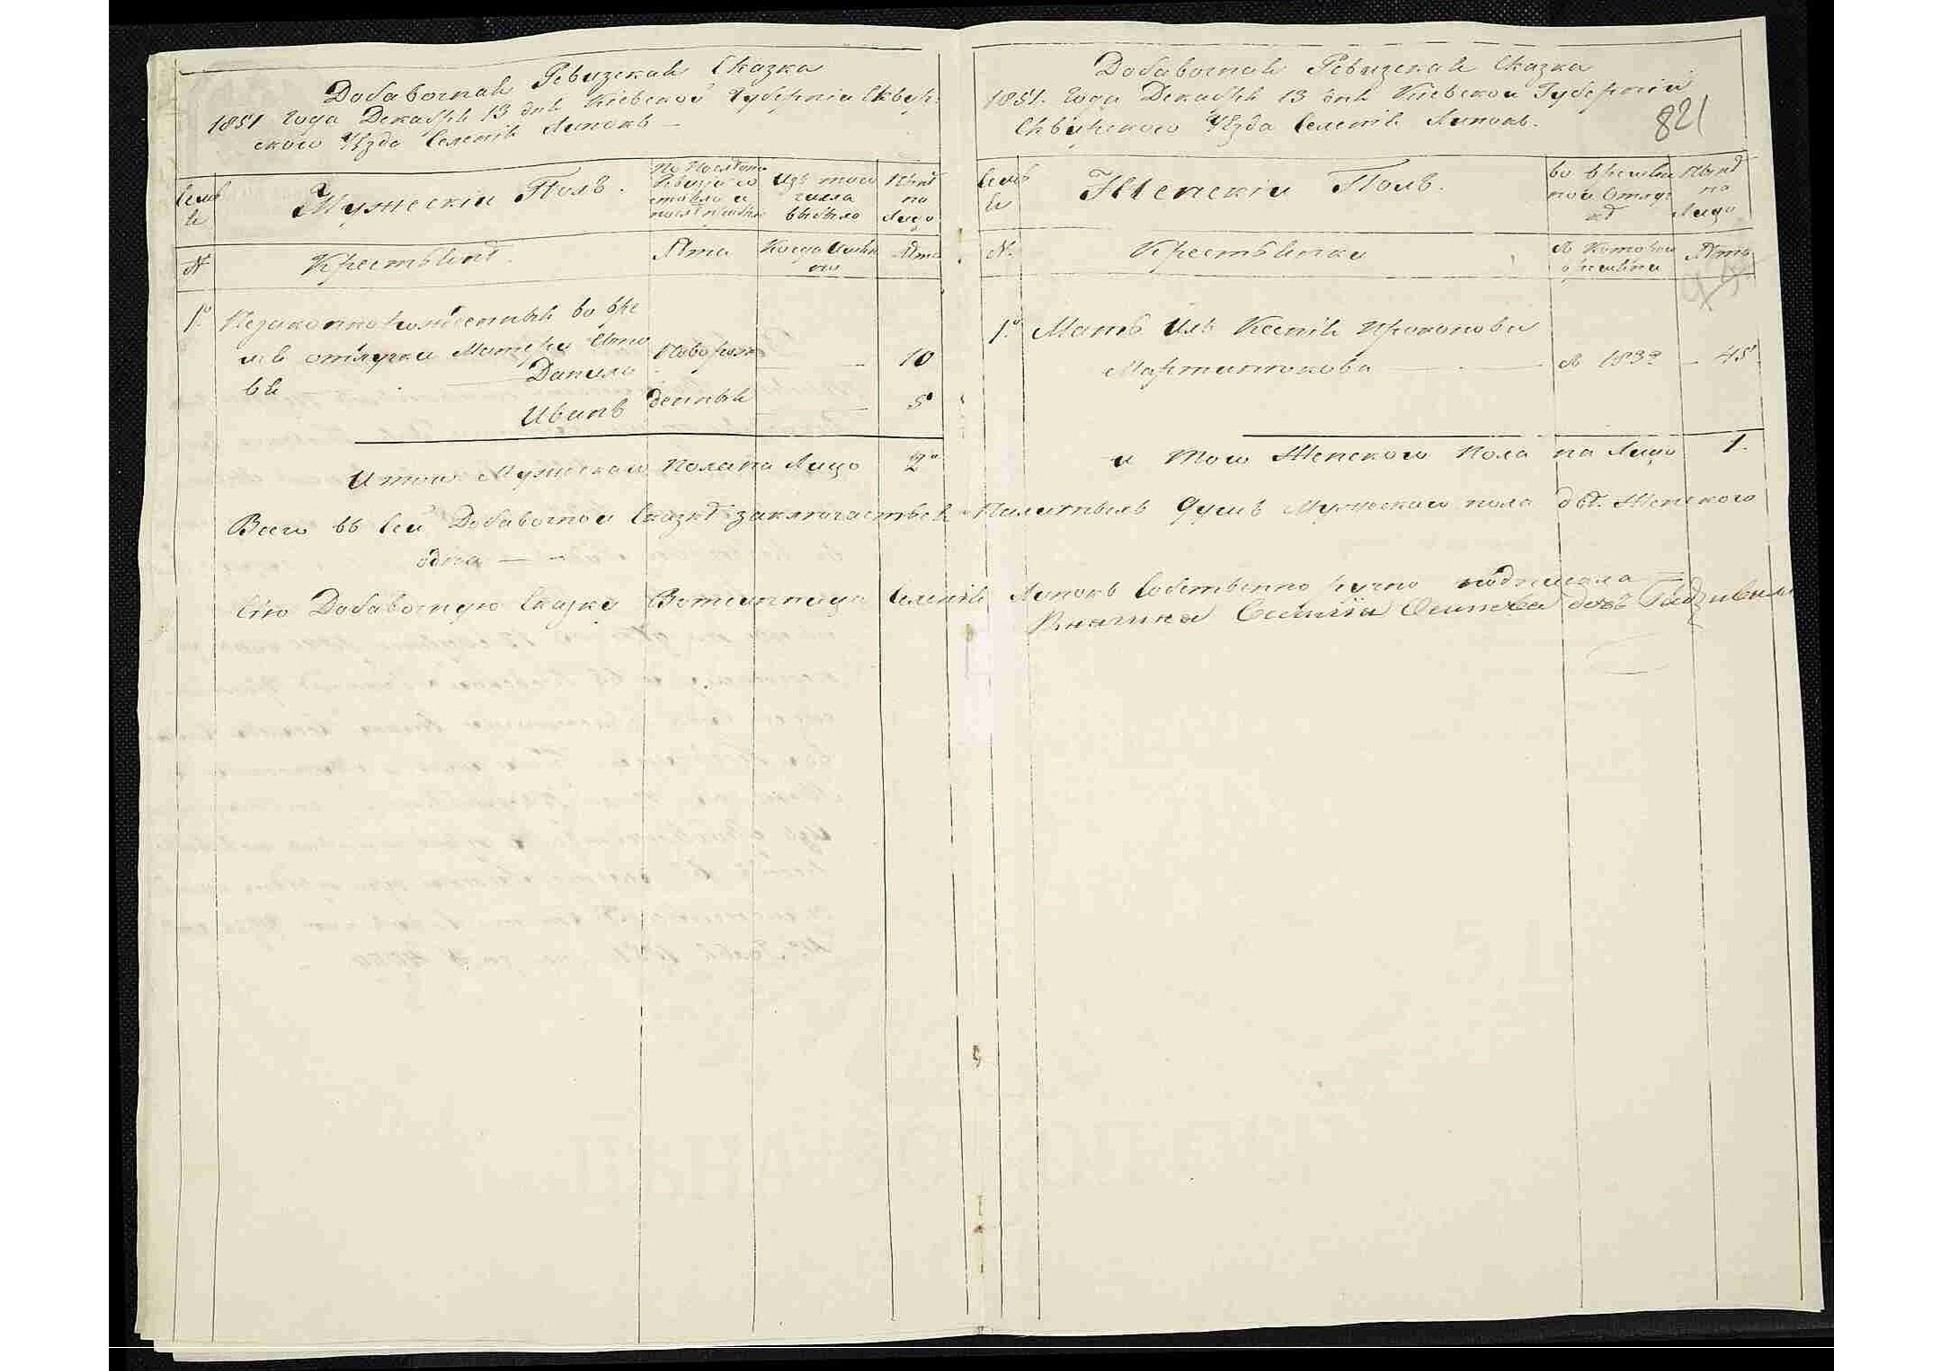 Добавочная Ревизская Сказка
1851 года Декабря 13 дня Кіевской Губерніи Сквир-
скаго Уѣзда Селенія Липокъ —
Семьи
Мужескій Полъ.
По Последней Ревизіи состояло и послѣ прибыло
Изъ того числа выбыло
Нынѣ на лицо
№
Крестьянѣ.
Лѣта
Когда именно
Лѣта
1.
Незаконнорожденныя во вре
мя отлучки Матери
Данило
Новорож
10
Иванъ
денныя
5
Итого Мужескаго пола на Лицо
2
Добавочная Ревизская Сказка
1851. Года Декабря 13 дня Кіевской Губерніи
Сквирского Уѣзда Селенія Липокъ.
821
Семьи
Женскій Полъ.
во временной отлучкѣ
Нынѣ на Лицо
№.
Крестьянки
Съ котораго времени
Лѣта
1.
Мать ихъ Ксенія Прокопова
Мартинюкова
Съ 183
45
и того Женского пола на Лицо
1.
Всего въ сей Добавочной Сказкѣ заключается Налитныхъ душъ Мужеского пола двѣ. Женского
одна — —
Сію Добавочную Сказку Вотчинница Селенія Липокъ Собственно ручно подписала —
Княгиня Осипова дочь Радзивилъ